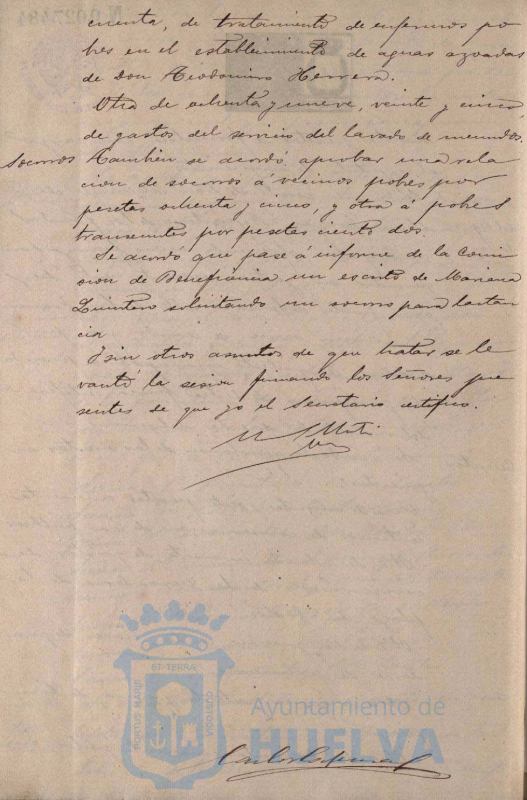 cuenta, de tratamiento de enfermos po
bres en el establecimiento de aguas azoadas
de Don Teodomiro Herrera.
Otra de ochenta y nueve, veinte y cinco,
de gastos del servicio del lavado de menudos.
Socorros Tambien se acordó aprobar una rela
cion de socorros á vecinos pobres por
pesetas ochenta y cinco, y otra á pobres
transeuntes por pesetas ciento dos.
Se acordó que pase á informe de la Comi
sion de Beneficencia un escrito de Mariana
Quintero solicitando un socorro para lactan
cia
Y sin otros asuntos de que tratar se le
vantó la sesion firmando los Señores pre
sentes de que yo el Secretario certifico.
PORTUS MARIS
ET TERRAE
CUSTODIA
Ayuntamiento de
HUELVA